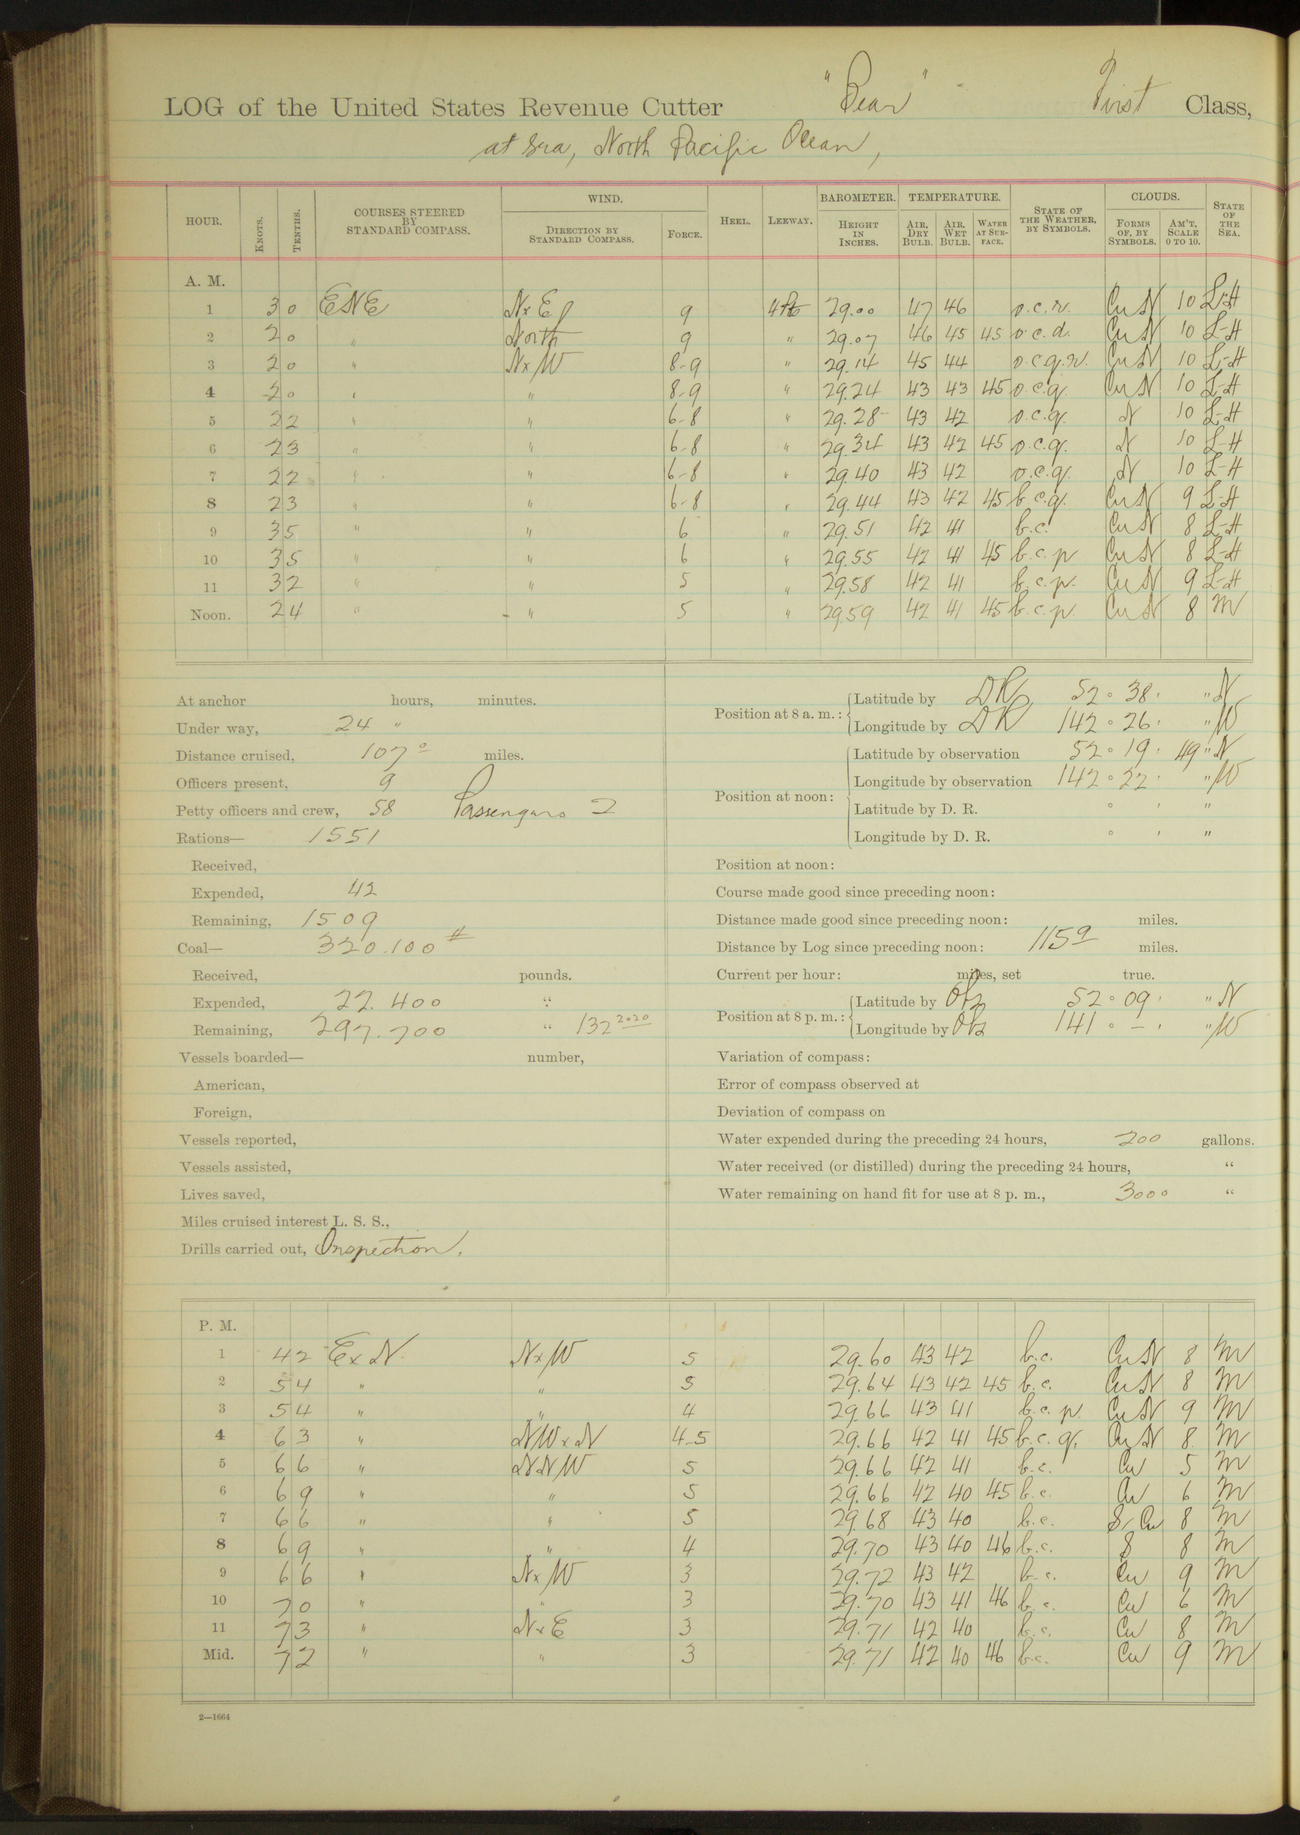 LOG of the United States Revenue Cutter "Bear" First Class,
at Sea, North Pacific Ocean,
HOUR. KNOTS. TENTHS. COURSES STEERED BY STANDARD COMPASS. WIND. DIRECTION BY STANDARD COMPASS. FORCE. HEEL. LEEWAY. BAROMETER. HEIGHT IN INCHES. TEMPERATURE. AIR, DRY BULB. AIR, WET BULB. WATER AT SURFACE. STATE OF THE WEATHER, BY SYMBOLS. CLOUDS. FORMS OF, BY SYMBOLS. AM'T, SCALE 0 TO 10. STATE OF THE SEA.
A. M.
1 3 0 ENE NxE 9 4 pts 29.00 47 46 o.c.r. CuN 10 L-H
2 2 0 " North 9 " 29.07 46 45 45 o.c.d. CuN 10 L-H
3 2 0 " NxW 8-9 " 29.14 45 44 o.c.q.r. CuN 10 L-H
4 2 0 " " 8-9 " 29.24 43 43 45 o.c.q. CuN 10 L-H
5 2 2 " " 6-8 " 29.28 43 42 o.c.q. N 10 L-H
6 2 3 " " 6-8 " 29.34 43 42 45 o.c.q. N 10 L-H
7 2 2 " " 6-8 " 29.40 43 42 o.c.q. N 10 L-H
8 2 3 " " 6-8 " 29.44 43 42 45 b.c.q. CuN 9 L-H
9 3 5 " " 6 " 29.51 42 41 b.c. CuN 8 L-H
10 3 5 " " 6 " 29.55 42 41 45 b.c.p CuN 8 L-H
11 3 2 " " 5 " 29.58 42 41 b.c.p. CuN 9 L-H
Noon. 2 4 " " 5 " 29.59 42 41 45 b.c.p. CuN 8 M
At anchor hours, minutes.
Under way, 24 "
Distance cruised, 107 0 miles.
Officers present, 9
Petty officers and crew, 58 Passengers 2
Rations— 1551
Received,
Expended, 42
Remaining, 1509
Coal— 320.100 #
Received, pounds.
Expended, 22.400 "
Remaining, 297.700 " 132 2020
Vessels boarded— number,
American,
Foreign,
Vessels reported,
Vessels assisted,
Lives saved,
Miles cruised interest L. S. S.,
Drills carried out, Inspection.
Position at 8 a. m.: Latitude by DR 52 ° 38 ' " N
Longitude by DR 142 ° 26 ' " W
Position at noon: Latitude by observation 52 ° 19 ' 49 " N
Longitude by observation 142 ° 22 ' " W
Latitude by D. R. ° ' "
Longitude by D. R. ° ' "
Position at noon:
Course made good since preceding noon:
Distance made good since preceding noon: miles.
Distance by Log since preceding noon: 115 9 miles.
Current per hour: miles, set true.
Position at 8 p. m.: Latitude by Obs 52 ° 09 ' " N
Longitude by Obs 141 ° – ' " W
Variation of compass:
Error of compass observed at
Deviation of compass on
Water expended during the preceding 24 hours, 200 gallons.
Water received (or distilled) during the preceding 24 hours, "
Water remaining on hand fit for use at 8 p. m., 3000 "
P. M.
1 4 2 ExN. NxW 5 29.60 43 42 b.c. CuN 8 M
2 5 4 " " 5 29.64 43 42 45 b.c. CuN 8 M
3 5 4 " " 4 29.66 43 41 b.c.p. CuN 9 M
4 6 3 " NWxN 4-5 29.66 42 41 45 b.c.q. CuN 8 M
5 6 6 " NNW 5 29.66 42 41 b.c. Cu 5 M
6 6 9 " " 5 29.66 42 40 45 b.c. Cu 6 M
7 6 6 " " 5 29.68 43 40 b.c. S, Cu 8 M
8 6 9 " " 4 29.70 43 40 46 b.c. S 8 M
9 6 6 " NxW 3 29.72 43 42 b.c. Cu 9 M
10 7 0 " " 3 29.70 43 41 46 b.c. Cu 6 M
11 7 3 " NxE 3 29.71 42 40 b.c. Cu 8 M
Mid. 7 2 " " 3 29.71 42 40 46 b.c. Cu 9 M
2—1664